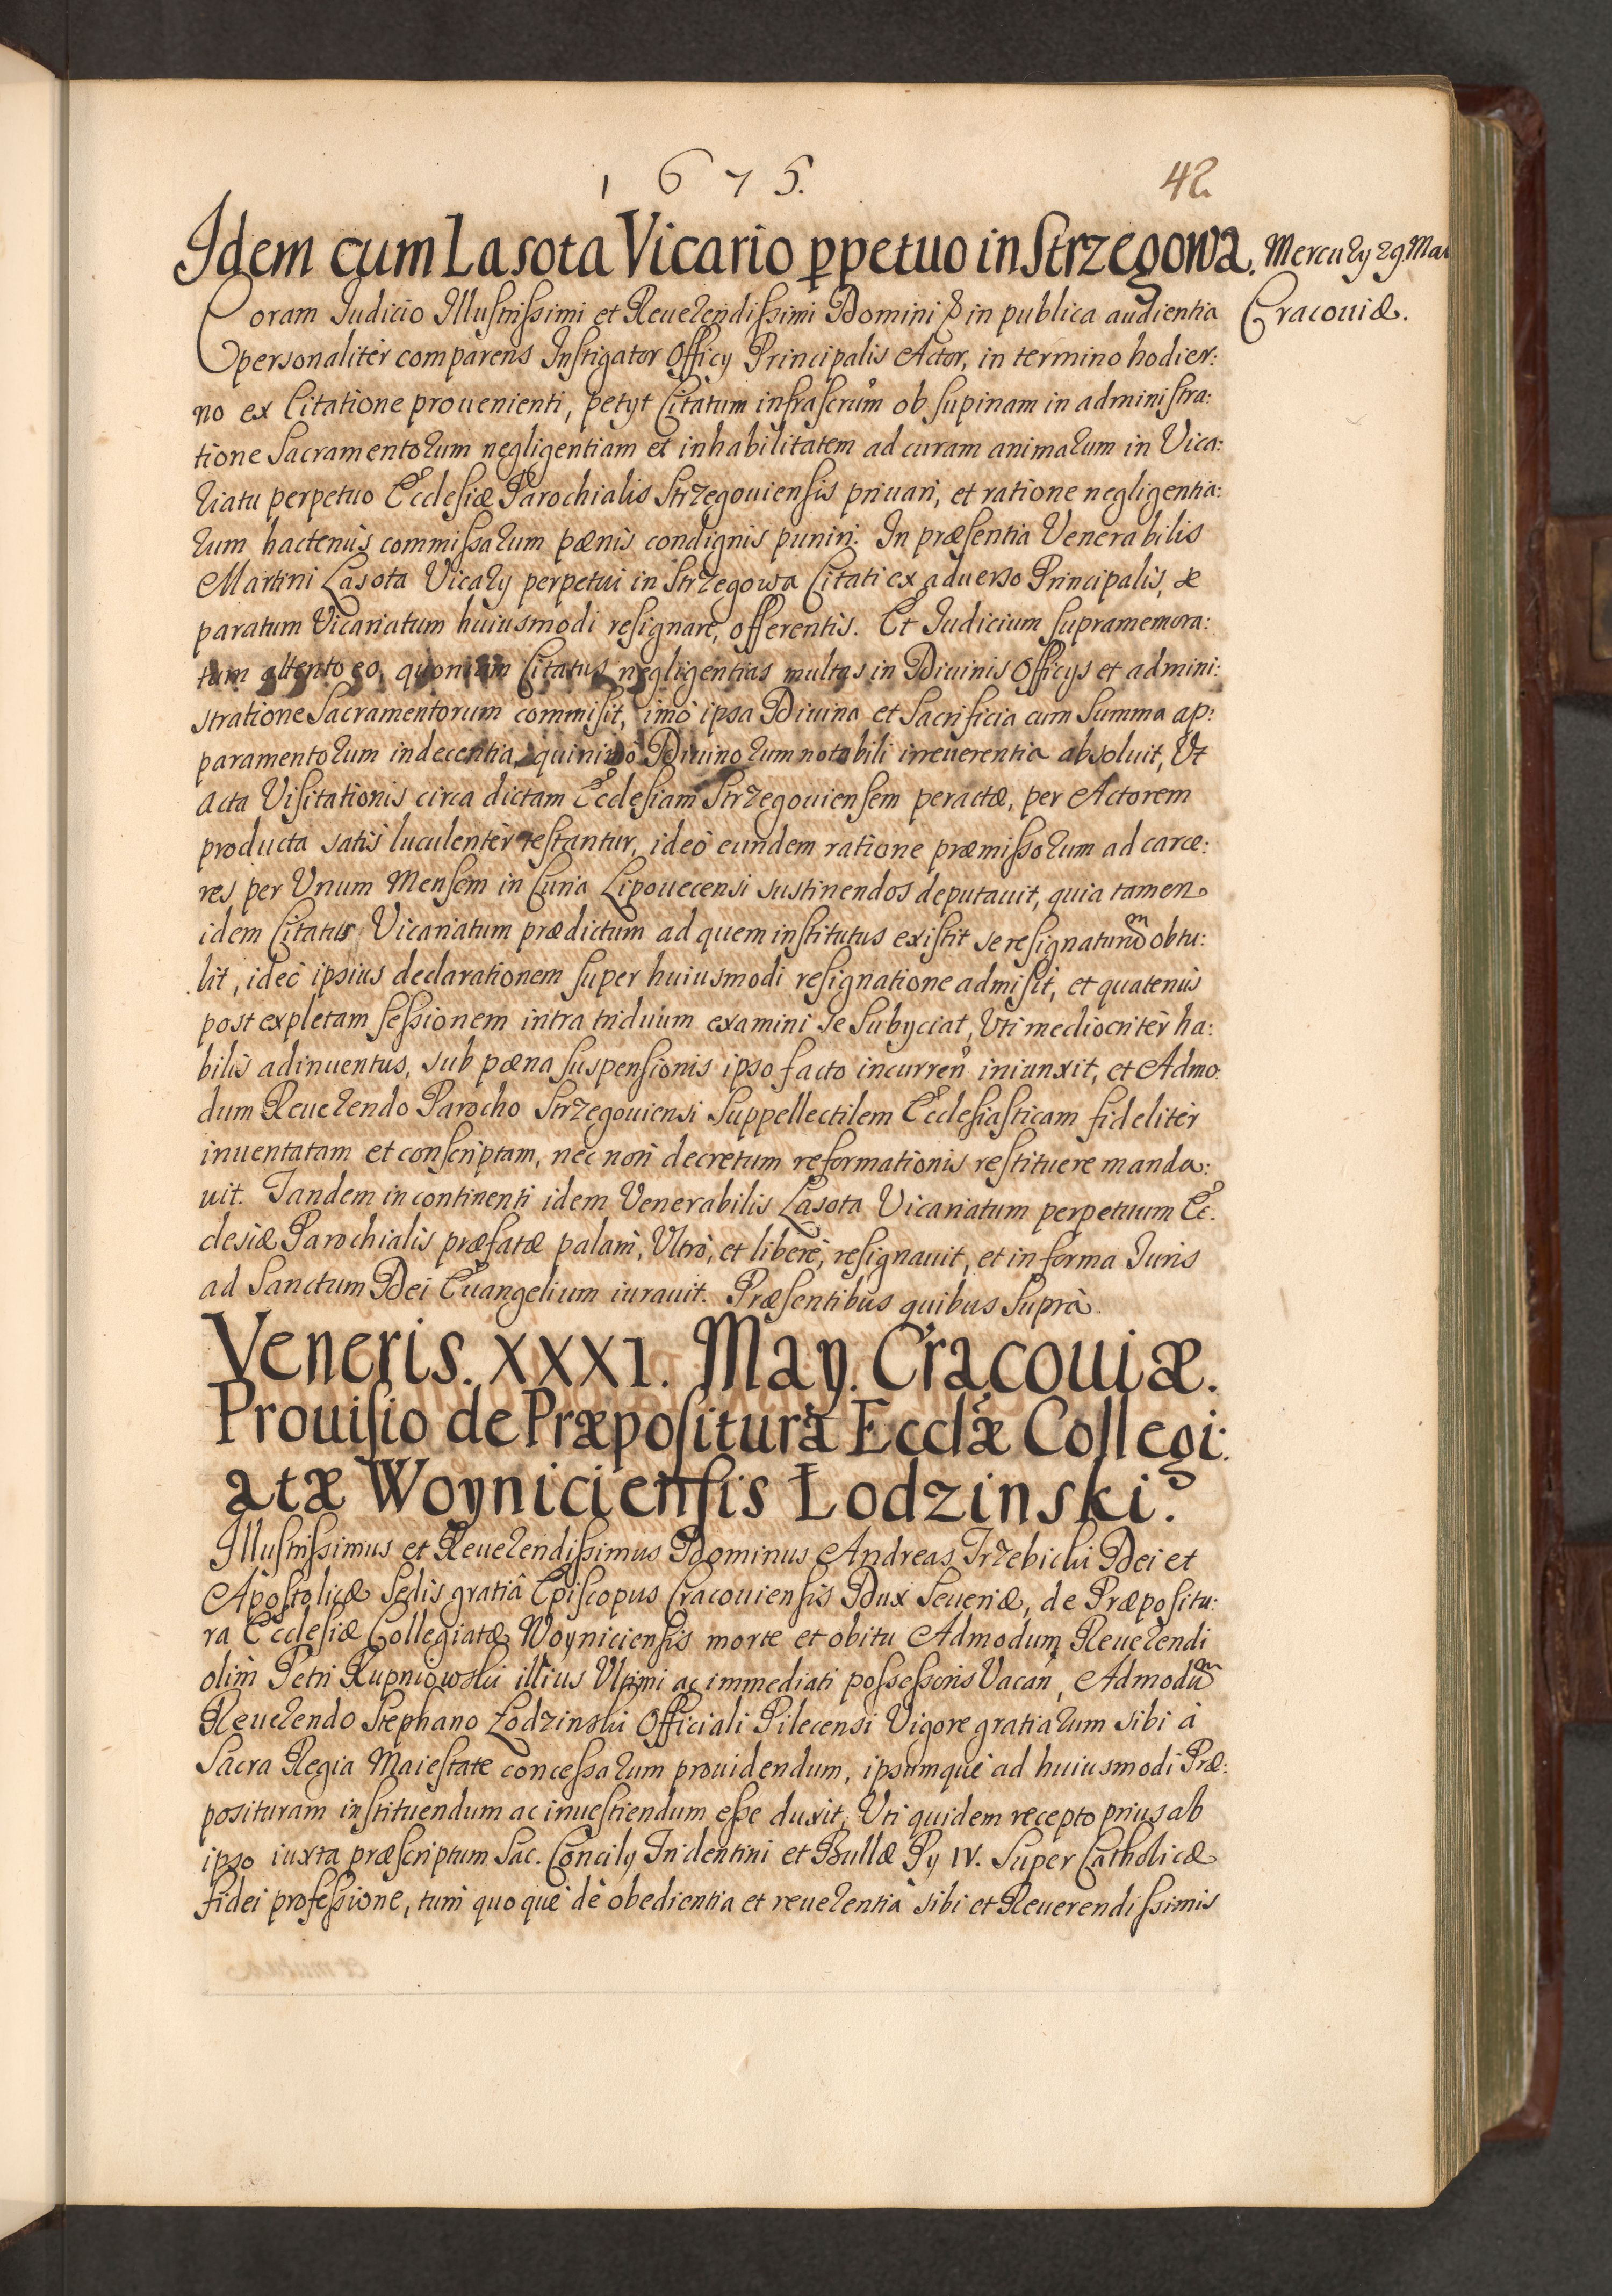 1675.
42
Idem cum Lasota Vicario ppetuo in Strzegowa.
Mercurÿ 29. Maÿ
Cracouiæ.
Coram Iudicio Illustrissimi et Reuerendissimi Domini & in publica audientia
personalitèr comparens Instigator Officÿ Principalis Actor, in termino hodier:
no ex Citatione prouenienti, petÿt Citatum infrascrũm ob supinam in administra:
tione Sacramentorum negligentiam et inhabilitatem ad curam animarum in Vica:
riatu perpetuo Ecclesiæ Parochialis Strzegouiensis priuari, et ratione negligentia:
rum hactenùs commissarum pænis condignis puniri. In præsentia Venerabilis
Martini Lasota Vicarÿ perpetui in Strzegowa Citati ex aduerso Principalis, æ
paratum Vicariatum huiusmodi resignare, offerentis. Et Iudicium supramemora:
tum attento eo, quoniàm Citatus negligentias multas in Diuinis Officÿs et admini:
stratione Sacramentorum commisit, imò ipsa Diuina et Sacrificia cum Summa ap:
paramentorum indecentia, quinimò Diuinorum notabili irreuerentia absoluit, Vt
acta Visitationis circa dictam Ecclesiam Strzegouiensem peractæ, per Actorem
producta satis luculentèr testantur, ideò eundem ratione præmissorum ad carce:
res per Vnum Mensem in Curia Lipouecensi sustinendos deputauit, quia tamen
idem Citatus Vicariatum prædictum ad quem institutus existit se resignaturum obtu:
lit, ideò ipsius declarationem super huiusmodi resignatione admisit, et quatenùs
post expletam sessionem intra triduùm examini se Subÿciat, Vti mediocritèr ha:
bilis adinuentus, sub pæna suspensionis ipso facto incurreñ iniunxit, et Admo:
dum Reuerendo Parocho Strzegouiensi Suppellectilem Ecclesiasticam fidelitèr
inuentatam et conscriptam, nec non decretum reformationis restituere manda:
uit. Tandem in continenti idem Venerabilis Lasota Vicariatum perpetuum Ec:
clesiæ Parochialis præfatæ palàm, Vltrò, et liberè, resignauit, et in forma Iuris
ad Sanctum Dei Euangelium iurauit. Præsentibus quibus Suprà.
Veneris. XXXI. Maÿ. Cracouiæ.
Prouisio de Præpositura Ecclæ Collegi:
atæ Woyniciensis Łodzinski.
Illustrissimus et Reuerendissimus Dominus Andreas Trzebicki Dei et
Apostolicæ Sedis gratiâ Episcopus Cracouiensis Dux Seueriæ, de Præpositu:
ra Ecclesiæ Collegiatæ Woyniciensis morte et obitu Admodum Reuerendi
olim Petri Rupniowski illius Vltimi ac immediati possessoris Vacañ, Admodum
Reuerendo Stephano Łodzinski Officiali Pilecensi Vigore gratiarum sibi à
Sacra Regia Maiestate concessarum prouidendum, ipsumque ad huiusmodi Præ:
posituram instituendum ac inuestiendum esse duxit, Vti quidem recepto priùs ab
ipso iuxta præscriptum Sac. Concilÿ Tridentini et Bullæ Pÿ IV. Super Catholicæ
fidei professione, tùm quoque de obedientia et reuerentia sibi et Reuerendissimis